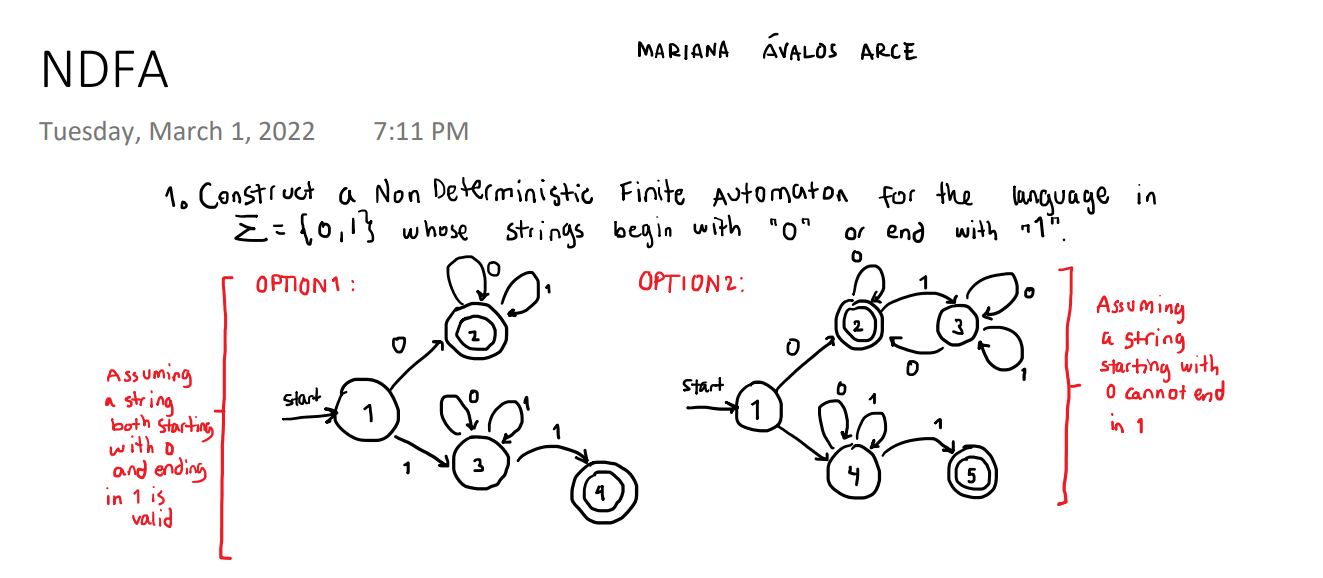 NDFA
MARIANA ÁVALOS ARCE
Tuesday, March 1, 2022 7:11 PM
1. Construct a Non Deterministic Finite Automaton for the language in
Σ = {0,1} whose strings begin with "0" or end with "1".
OPTION 1:
0
1
2
0
Start
1
1
0
1
3
1
4
Assuming
a string
both starting
with 0
and ending
in 1 is
valid
OPTION 2:
0
1
0
2
3
0
1
0
Start
1
0
1
4
1
5
Assuming
a string
starting with
0 cannot end
in 1